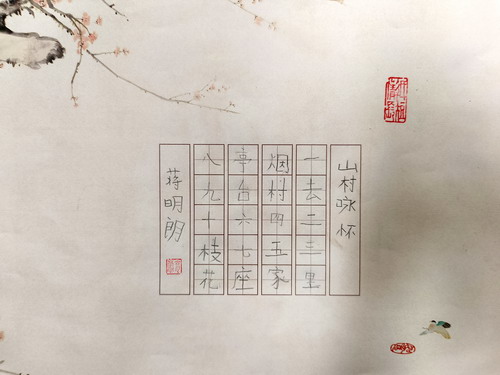 山村咏怀
一去二三里
烟村四五家
亭台六七座
八九十枝花
蒋明朗